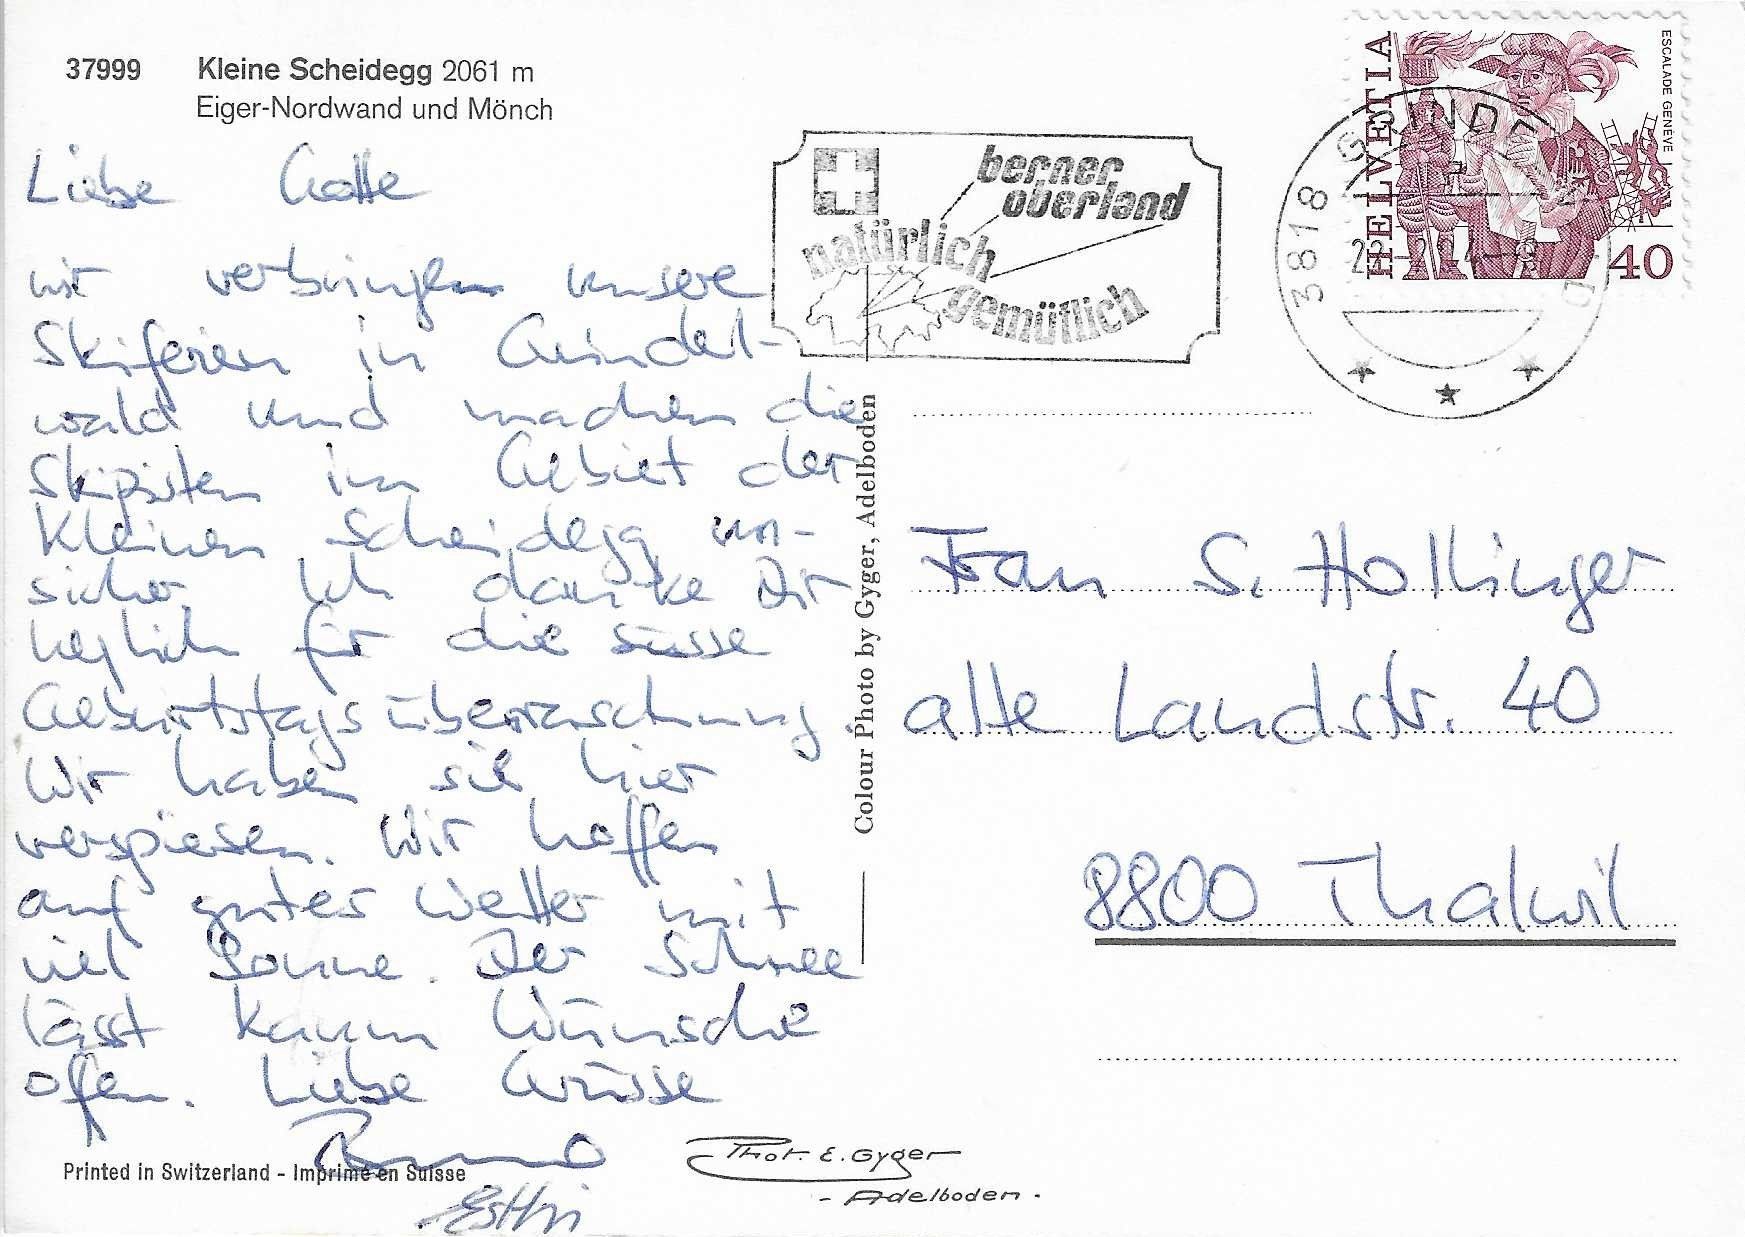 37999 Kleine Scheidegg 2061 m
Eiger-Nordwand und Mönch
Liebe Gotte
wir verbringen unsere
Skiferien in Grindel-
wald und machen die
Skipisten im Gebiet der
Kleinen Scheidegg un-
sicher. Ich danke Dir
herzlich für die süsse
Geburtstagsüberraschung.
Wir haben sie hier
verspiesen. Wir hoffen
auf gutes Wetter mit
viel Sonne. Der Schnee
lässt kaum Wünsche
offen. Liebe Grüsse
Bruno
Esthi
Printed in Switzerland - Imprimé en Suisse
Phot. E. Gyger
- Adelboden -
Colour Photo by Gyger, Adelboden
berner
oberland
natürlich
gemütlich
3818 GRINDE
HELVETIA
ESCALADE GENÈVE
40
Frau S. Hollinger
alte Landstr. 40
8800 Thalwil